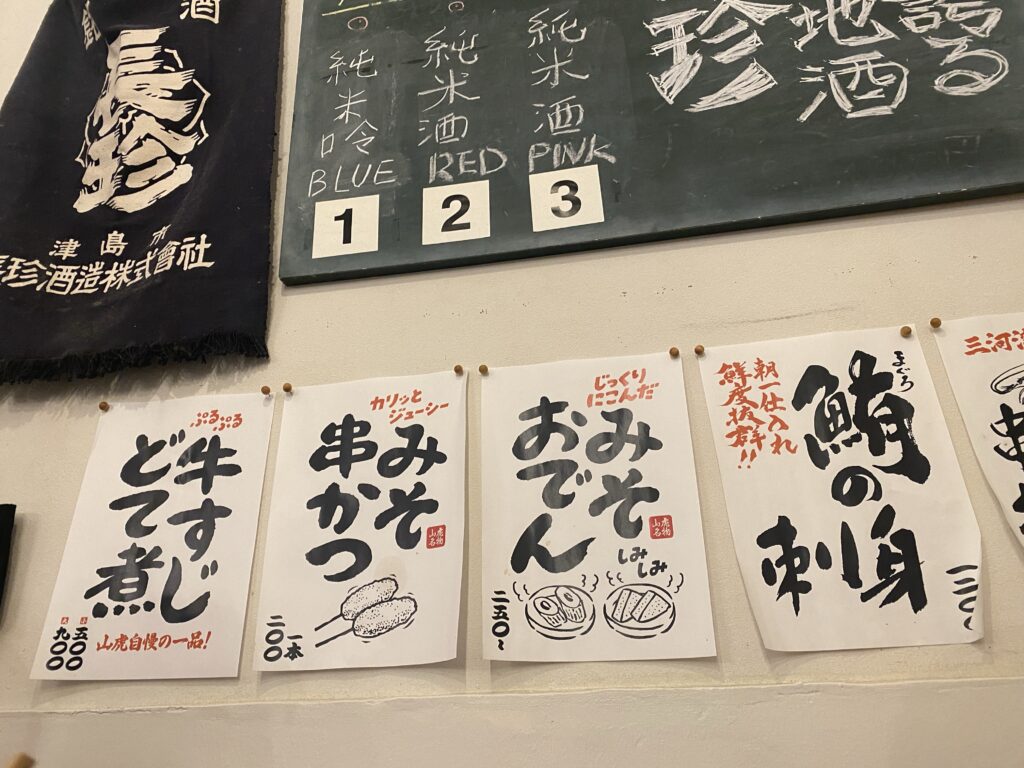 酒
長珍
津島市
長珍酒造株式會社
誇る
地酒
珍
純米酒
PINK
3
純米酒
RED
2
純米吟
BLUE
1
ぷるぷる
牛すじ
どて煮
小 五〇〇
大 九〇〇
山虎自慢の一品!
カリッと
ジューシー
みそ
串かつ
山虎
名物
一本
二〇〇
じっくり
にこんだ
みそ
おでん
山虎
名物
しみ
しみ
二五〇〜
まぐろ
鮪の
刺身
朝一仕入れ
鮮度抜群!!
三河
串